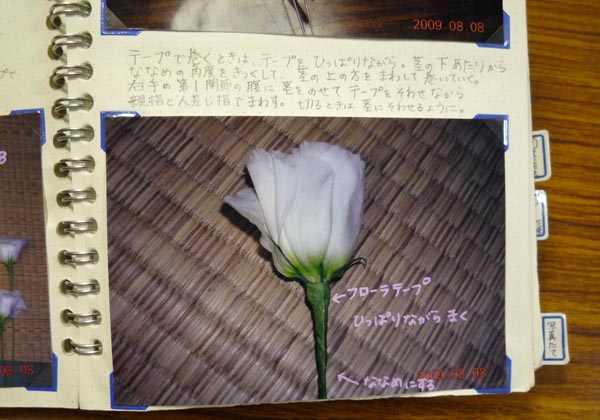 2009.08.08
テープで巻くときは、テープを ひっぱりながら。茎の下あたりから
ななめの角度をきつくして、茎の上の方を まわして巻いていく。
右手の第1関節の腹に 茎をのせて テープをそわせながら
親指と人差し指でまわす。切るときは 茎にそわせるように。
←フローラテープ
ひっぱりながら まく
2009.08.08
←ななめにする
08.08
写真たて